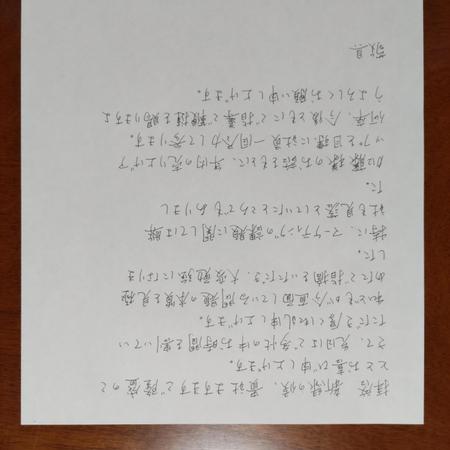 拝啓 新緑の候、貴社ますますご隆盛のこ
ととお喜び申し上げます。
さて、先日はご多忙の中お時間を割いてい
ただき厚く御礼申し上げます。
私どもが今直面している問題の本質を見極
めたご指摘をいただき、大変勉強になりま
した。
特に、マーケティングの課題に関しては弊
社も見落としていたところでもありまし
た。
加藤様のお話をもとに、年内の売り上げア
ップを目標に社員一同尽力して参ります。
何卒、今後ともにご指導ご鞭撻を賜りますよ
うよろしくお願い申し上げます。
敬具